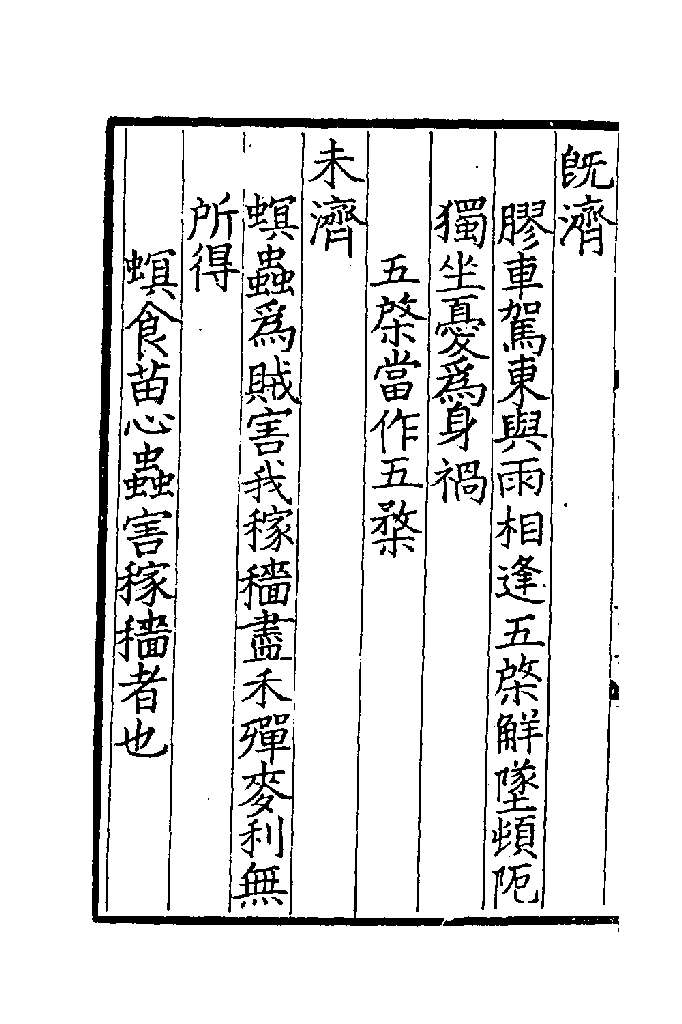 既濟
膠車駕東與雨相逢五棨解墜頓阨
獨坐憂爲身禍
五棨當作五楘
未濟
螟蟲爲賊害我稼穡盡禾殫麥利無
所得
螟食苗心蟲害稼穡者也